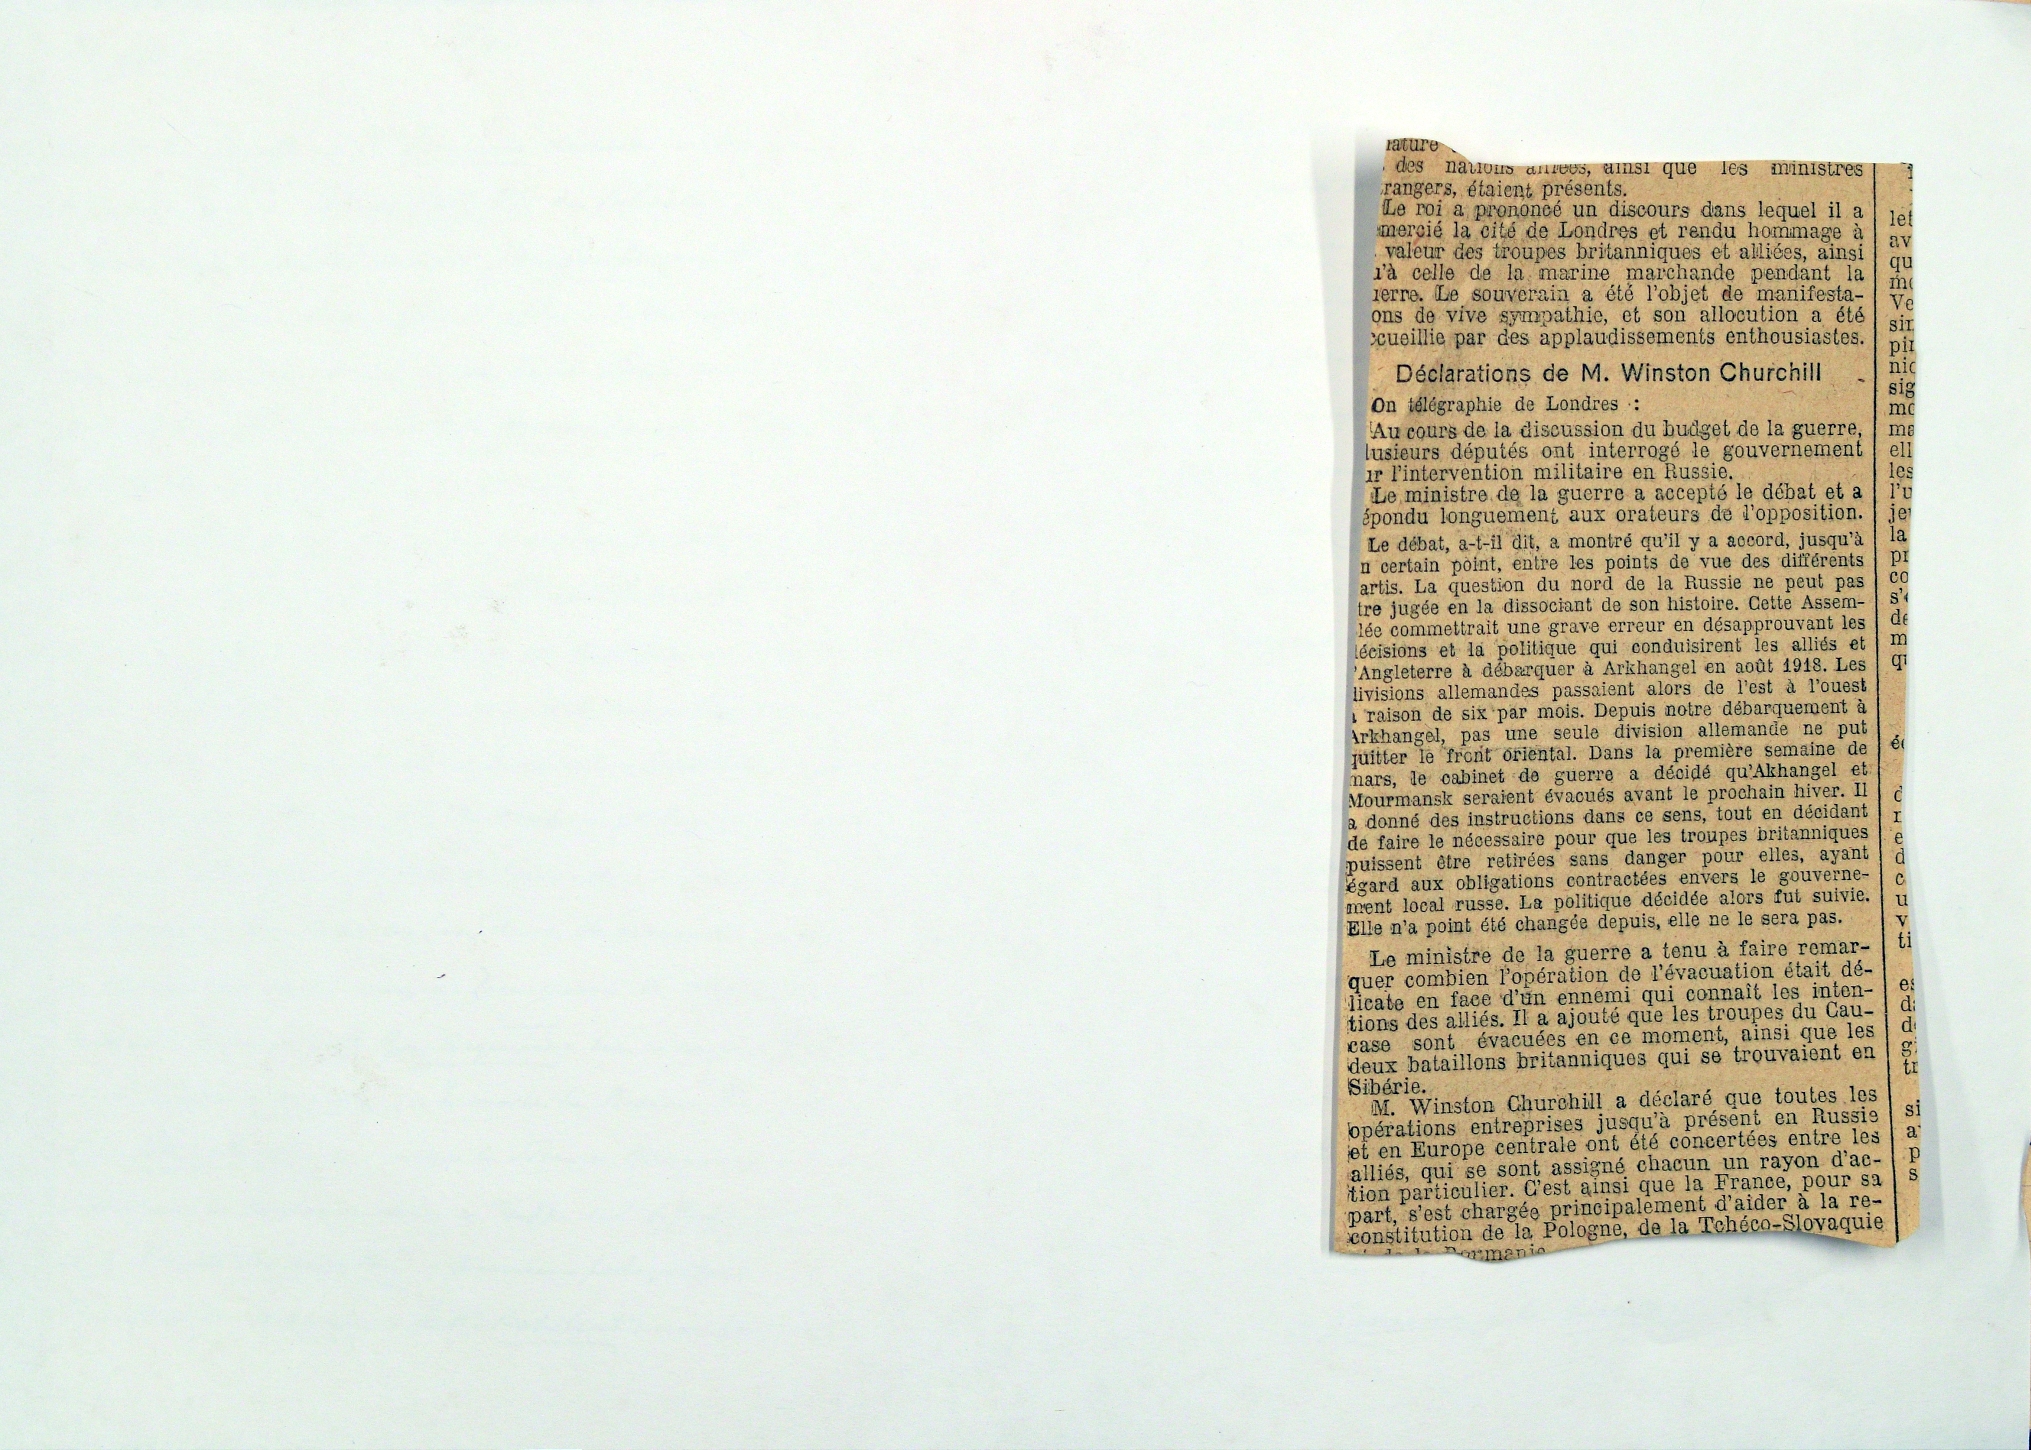 des nations alliées, ainsi que les ministres
rangers, étaient présents.
Le roi a prononcé un discours dans lequel il a
mercié la cité de Londres et rendu hommage à
valeur des troupes britanniques et alliées, ainsi
'à celle de la marine marchande pendant la
ierre. Le souverain a été l'objet de manifesta-
ons de vive sympathie, et son allocution a été
cueillie par des applaudissements enthousiastes.
Déclarations de M. Winston Churchill
On télégraphie de Londres :
Au cours de la discussion du budget de la guerre,
lusieurs députés ont interrogé le gouvernement
ur l'intervention militaire en Russie.
Le ministre de la guerre a accepté le débat et a
épondu longuement aux orateurs de l'opposition.
Le débat, a-t-il dit, a montré qu'il y a accord, jusqu'à
n certain point, entre les points de vue des différents
artis. La question du nord de la Russie ne peut pas
tre jugée en la dissociant de son histoire. Cette Assem-
lée commettrait une grave erreur en désapprouvant les
écisions et la politique qui conduisirent les alliés et
'Angleterre à débarquer à Arkhangel en août 1918. Les
divisions allemandes passaient alors de l'est à l'ouest
raison de six par mois. Depuis notre débarquement à
Arkhangel, pas une seule division allemande ne put
quitter le front oriental. Dans la première semaine de
mars, le cabinet de guerre a décidé qu'Akhangel et
Mourmansk seraient évacués avant le prochain hiver. Il
a donné des instructions dans ce sens, tout en décidant
de faire le nécessaire pour que les troupes britanniques
puissent être retirées sans danger pour elles, ayant
égard aux obligations contractées envers le gouverne-
ment local russe. La politique décidée alors fut suivie.
Elle n'a point été changée depuis, elle ne le sera pas.
Le ministre de la guerre a tenu à faire remar-
quer combien l'opération de l'évacuation était dé-
licate en face d'un ennemi qui connaît les inten-
tions des alliés. Il a ajouté que les troupes du Cau-
case sont évacuées en ce moment, ainsi que les
deux bataillons britanniques qui se trouvaient en
Sibérie.
M. Winston Churchill a déclaré que toutes les
opérations entreprises jusqu'à présent en Russie
et en Europe centrale ont été concertées entre les
alliés, qui se sont assigné chacun un rayon d'ac-
tion particulier. C'est ainsi que la France, pour sa
part, s'est chargée principalement d'aider à la re-
constitution de la Pologne, de la Tchéco-Slovaquie
let
av
qu
Ve
sin
pin
nic
sig
mo
ma
ell
les
l'u
je
la
pr
co
s'
de
m
qu